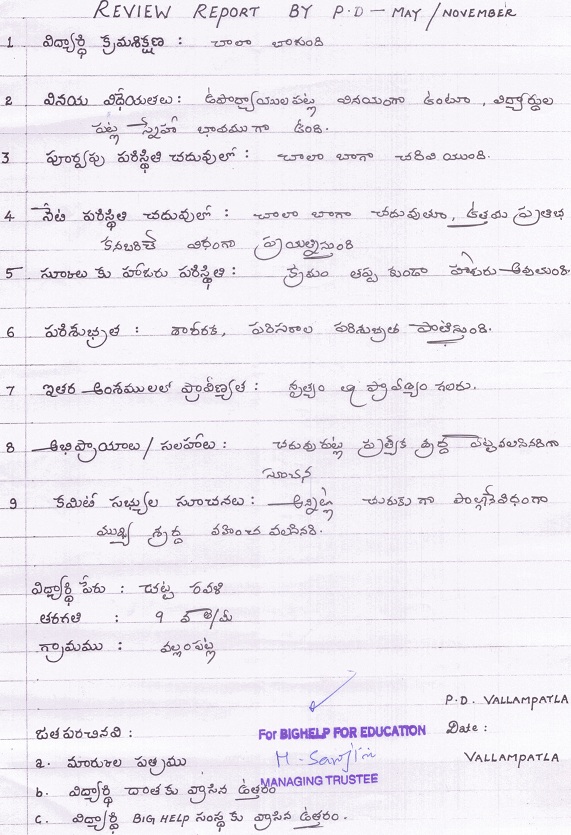 REVIEW REPORT BY P.D - MAY / NOVEMBER
1 విద్యార్థి క్రమశిక్షణ : చాలా బాగుంది
2 వినయ విధేయతలు : ఉపాధ్యాయుల పట్ల వినయంగా ఉంటూ, విద్యార్థుల
పట్ల స్నేహ భావముగా ఉంది.
3 పూర్వపు పరిస్థితి చదువులో : చాలా బాగా చదివి యుంది.
4 నేటి పరిస్థితి చదువులో : చాలా బాగా చదువుతూ, ఉత్తమ ప్రతిభ
కనబరిచే విధంగా ప్రయత్నిస్తుంది
5 స్కూలు కు హాజరు పరిస్థితి : క్రమం తప్ప కుండా హాజరు అవుతుంది.
6 పరిశుభ్రత : శారీరక, పరిసరాల పరిశుభ్రత పాటిస్తుంది.
7 ఇతర అంశములలో ప్రావీణ్యత : నృత్యం లో ప్రావీణ్యం కలదు.
8 అభిప్రాయాలు / సలహాలు : చదువు పట్ల ప్రత్యేక శ్రద్ధ పెట్టవలసినదిగా
సూచన
9 కమిటీ సభ్యుల సూచనలు : అన్నింట్లో చురుకు గా పాల్గొనేవిధంగా
ముఖ్య శ్రద్ధ వహించ వలసినది.
విద్యార్థి పేరు : రవళి
తరగతి : 9 వ
గ్రామము : వల్లంపట్ల
P.D. VALLAMPATLA
జత పరచినవి : For BIGHELP FOR EDUCATION Date :
a. మార్కుల పత్రము VALLAMPATLA
MANAGING TRUSTEE
b. విద్యార్థి దాత కు వ్రాసిన ఉత్తరం
c. విద్యార్థి BIG HELP సంస్థ కు వ్రాసిన ఉత్తరం.